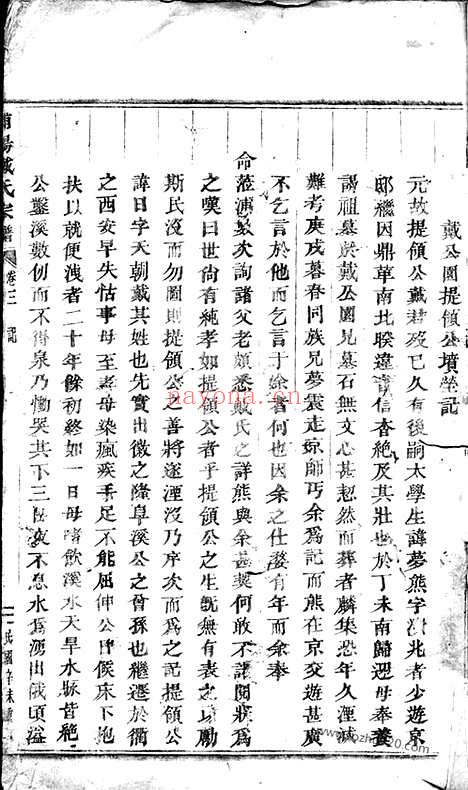 戴公園提領公墳塋記
元故提領公戴君歿已久有後嗣太學生諱夢熊字 兆者少遊京
邸 因鼎革南北睽違音信杳絶及其壯也於丁未南歸迎母奉養
謁祖墓於戴公園見墓石無文心甚愀然而葬者麟集恐年久湮滅
難考庚戌暮春同族兄夢震走京師丐余為記而熊在京交遊甚廣
不乞言於他而乞言于余者何也因余之仕婺有年而余奉
命蒞浦 次詢諸父老頗悉戴氏之詳熊與余甚契何敢不 闡 為
之嘆曰世尚有純孝如提領公者乎提領公之生既無有表之以勵
斯氏沒而勿圖則提領公之善將遂湮沒乃序次而為之記提領公
諱日字天朝戴其姓也先實出微之隆阜溪公之曾孫也繼遷於衢
之西安早失怙事母至 母染瘋疾手足不能屈伸公日候床下抱
扶以就便洩者二十年餘初終如一日母嗜飲溪水天旱水脉皆絶
公鑿溪數仞而不得泉乃慟哭其下三 夜不息水為湧出俄頃溢
浦陽戴氏宗譜
卷三 記
一
民國辛未重
nayona.cn